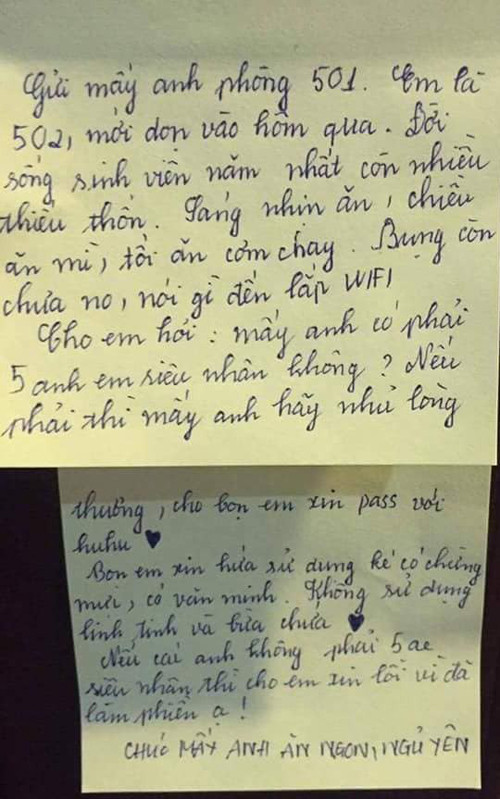 Gửi mấy anh phòng 501. Em là
502, mới dọn vào hôm qua. Đời
sống sinh viên năm nhất còn nhiều
thiếu thốn. Sáng nhịn ăn, chiều
ăn mì, tối ăn cơm chay. Bụng còn
chưa no, nói gì đến lắp WIFI
Cho em hỏi: mấy anh có phải
5 anh em siêu nhân không? Nếu
phải thì mấy anh hãy nhủ lòng
thương, cho bọn em xin pass với
huhu ♥
Bọn em xin hứa sử dụng ké có chừng
mực, có văn minh. Không sử dụng
linh tinh và bừa chứa ♥
Nếu các anh không phải 5 ae
siêu nhân thì cho em xin lỗi vì đã
làm phiền ạ!
CHÚC MẤY ANH ĂN NGON, NGỦ YÊN